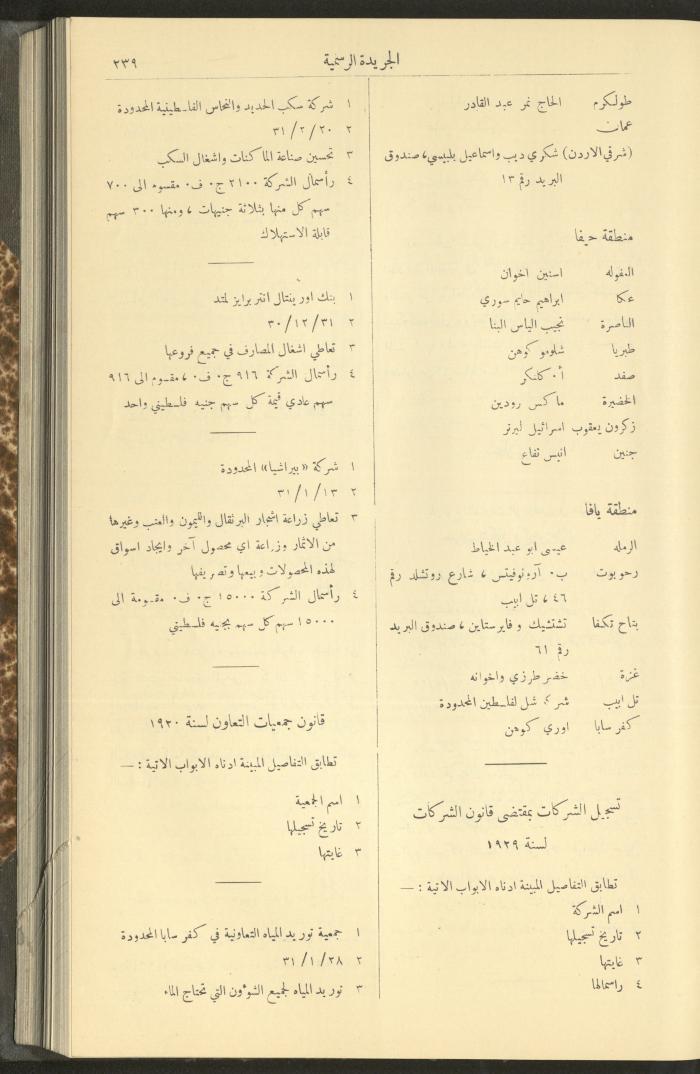 الجريدة الرسمية
٢٣٩
طولكرم الحاج نمر عبد القادر
عمان
(شرقي الاردن) شكري ديب واسماعيل بلبيسي، صندوق
البريد رقم ١٣
منطقة حيفا
العفوله اسنين اخوان
عكا ابراهيم حليم سوري
الناصرة نجيب الياس البنا
طبريا شلومو كوهن
صفد أ. كانكر
الخضيرة ماكس رودين
زكرون يعقوب اسرائيل ليرنر
جنين انيس تفاع
منطقة يافا
الرمله عيسى ابو عبد الخياط
رحوبوت ب. آرونوفيتس، شارع روتشلد رقم
٤٦، تل ابيب
بتاح تكفا تشتشيك و فايرستاين، صندوق البريد
رقم ٦١
غزة خضر طرزي واخوانه
تل ابيب شركة شل لفلسطين المحدودة
كفر سابا اوري كوهن
تسجيل الشركات بمقتضى قانون الشركات
لسنة ١٩٢٩
تطابق التفاصيل المبينة ادناه الابواب الاتية : —
١ اسم الشركة
٢ تاريخ تسجيلها
٣ غايتها
٤ راسمالها
١ شركة سكب الحديد والنحاس الفلسطينية المحدودة
٢ ٣١/٢/٢٠
٣ تحسين صناعة الماكنات واشغال السكب
٤ رأسمال الشركة ٢١٠٠ ج. ف. مقسوم الى ٧٠٠
سهم كل منها بثلاثة جنيهات، ومنها ٣٠٠ سهم
قابلة الاستهلاك
١ بنك اورينتال انتربرايز لمتد
٢ ٣٠/١٢/٣١
٣ تعاطي اشغال المصارف في جميع فروعها
٤ رأسمال الشركة ٩١٦ ج. ف.، مقسوم الى ٩١٦
سهم عادي قيمة كل سهم جنيه فلسطيني واحد
١ شركة «بيراشيا» المحدودة
٢ ٣١/١/١٣
٣ تعاطي زراعة اشجار البرتقال والليمون والعنب وغيرها
من الاثمار وزراعة اي محصول آخر وايجاد اسواق
لهذه المحصولات وبيعها وتصريفها
٤ رأسمال الشركة ١٥٠٠٠ ج. ف. مقسومة الى
١٥٠٠٠ سهم كل سهم بجنيه فلسطيني
قانون جمعيات التعاون لسنة ١٩٢٠
تطابق التفاصيل المبينة ادناه الابواب الاتية : —
١ اسم الجمعية
٢ تاريخ تسجيلها
٣ غايتها
١ جمعية توريد المياه التعاونية في كفر سابا المحدودة
٢ ٣١/١/٢٨
٣ توريد المياه لجميع الشؤون التي تحتاج الماء